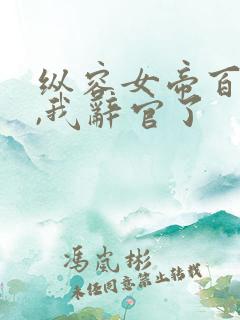 纵容女帝百
,我辭官了
冯岚彬
未任同意禁止转载